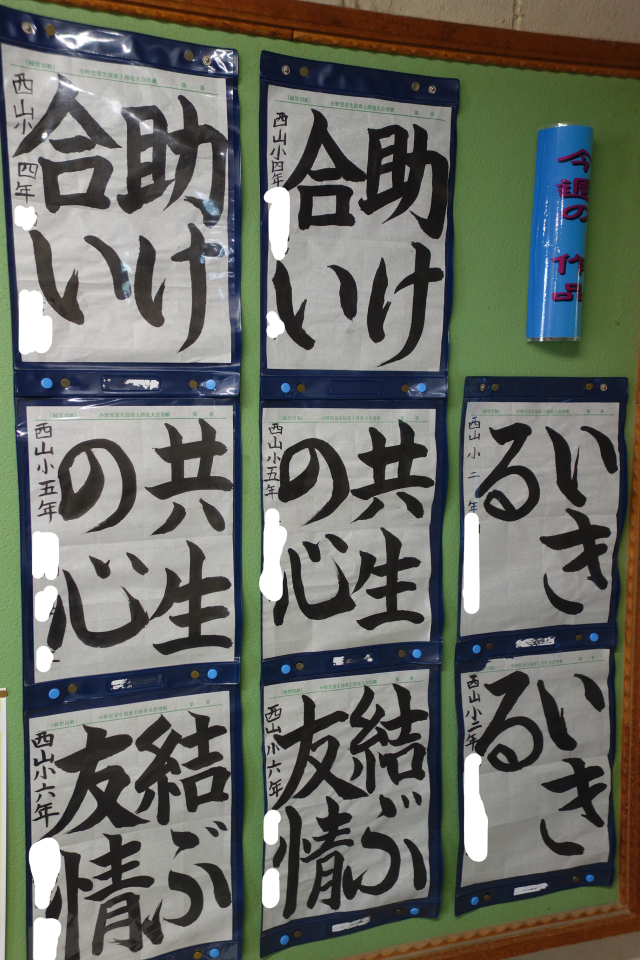 今週の作品
西山小四年
助け
合い
西山小四年
助け
合い
西山小五年
共生
の心
西山小五年
共生
の心
西山小二年
いき
る
西山小六年
結ぶ
友情
西山小六年
結ぶ
友情
西山小二年
いき
る